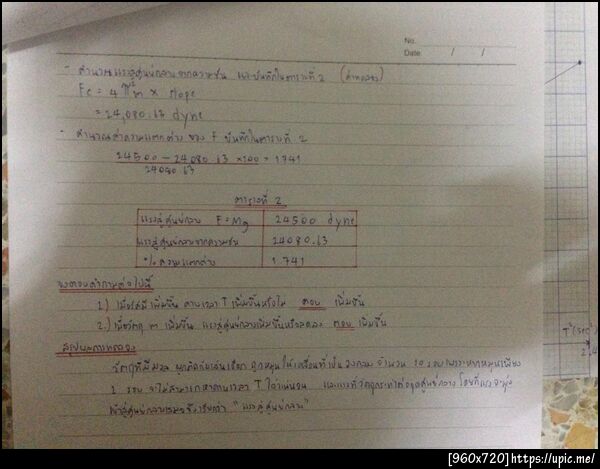 No.
Date / /
- คำนวณแรงสู่ศูนย์กลางจากความชัน และบันทึกในตารางที่ 2
Fc = 4π²m × slope
= 24,080.63 dyne
- คำนวณค่าความแตกต่าง ของ F บันทึกในตารางที่ 2
24500 - 24080.63 × 100 = 1.741
24080.63
ตารางที่ 2
แรงสู่ศูนย์กลาง F = Mg 24500 dyne
แรงสู่ศูนย์กลางจากความชัน 24080.63
% ความแตกต่าง 1.741
จงตอบคำถามต่อไปนี้
1.) เมื่อรัศมีเพิ่มขึ้น คาบเวลา T เพิ่มขึ้นหรือไม่ ตอบ เพิ่มขึ้น
2.) เมื่อวัตถุ m เพิ่มขึ้น แรงสู่ศูนย์กลางเพิ่มขึ้นหรือลดลง ตอบ เพิ่มขึ้น
สรุปผลการทดลอง
วัตถุที่มีมวล ผูกติดกับเส้นเชือก ถูกหมุนให้เคลื่อนที่เป็นวงกลม จำนวน 10 รอบ เพราะหากหมุนเพียง
1 รอบ จะไม่สามารถหาคาบเวลา T ได้แน่นอน และแรงที่วัตถุกระทำต่อจุดศูนย์กลาง โดยที่แรงจะพุ่ง
เข้าสู่ศูนย์กลางเสมอ จึงเรียกว่า "แรงสู่ศูนย์กลาง"
T²(sec²)
[960x720]https://upic.me/